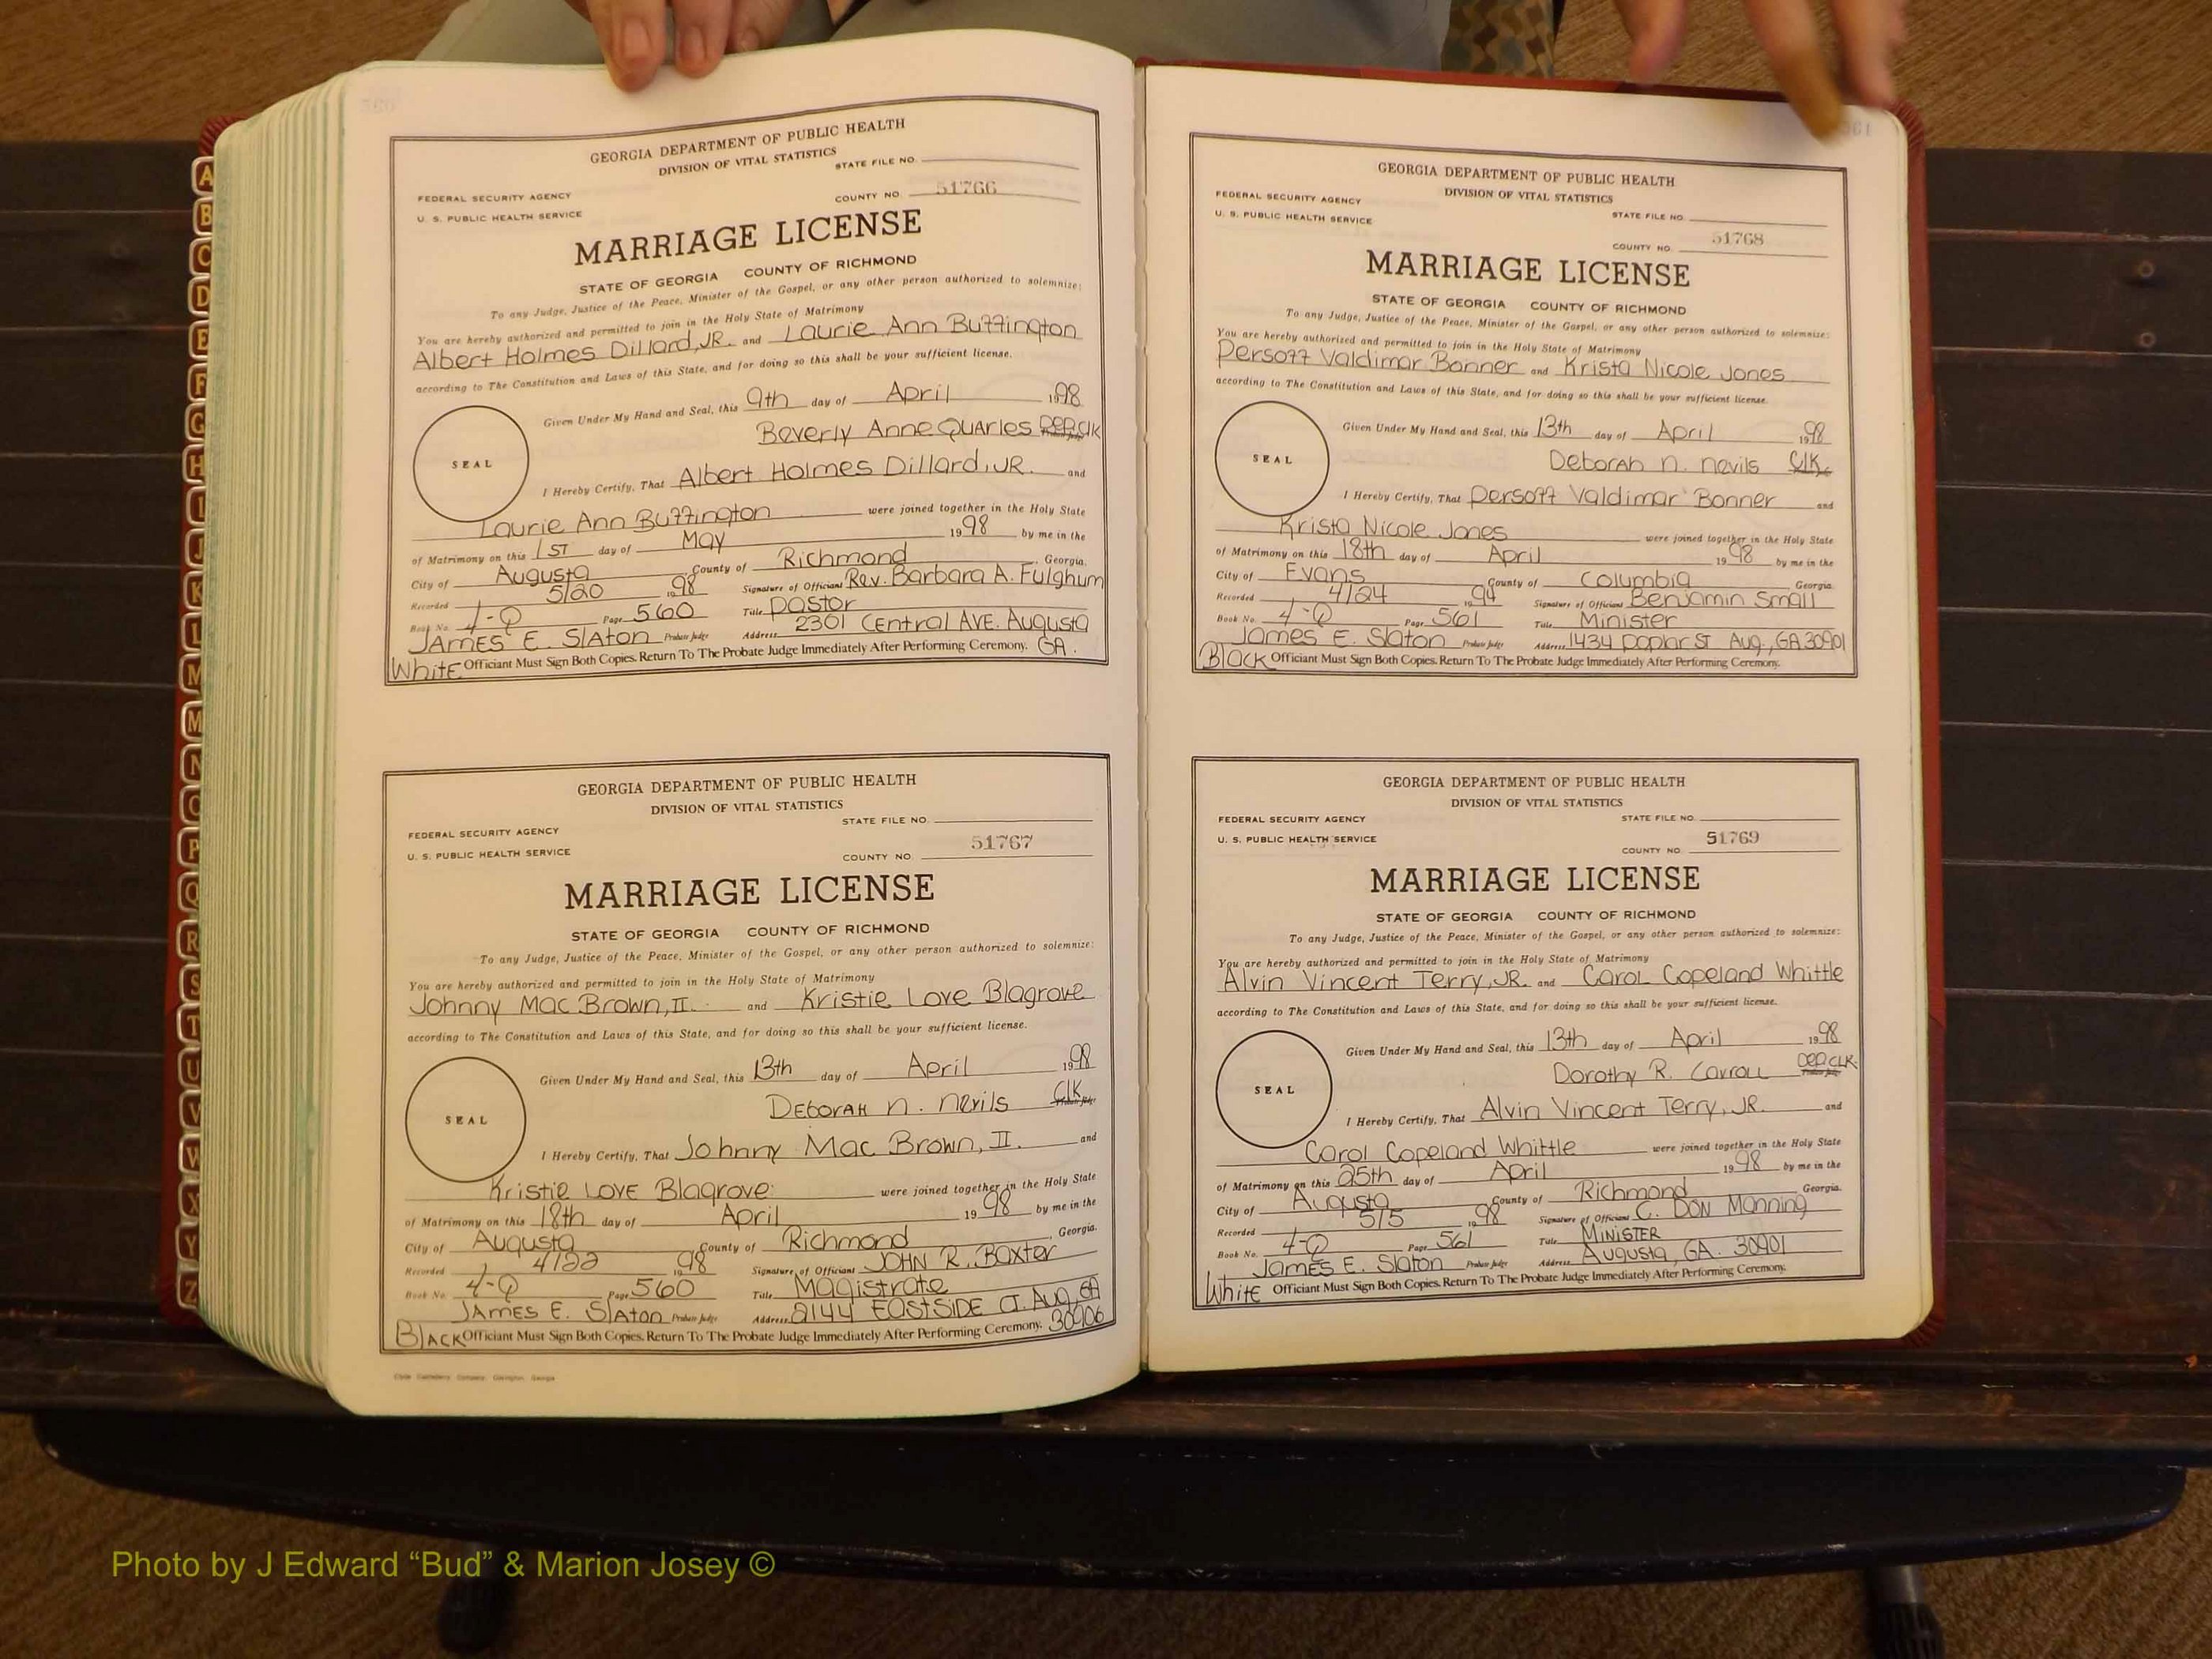 GEORGIA DEPARTMENT OF PUBLIC HEALTH
DIVISION OF VITAL STATISTICS
STATE FILE NO.
FEDERAL SECURITY AGENCY
U. S. PUBLIC HEALTH SERVICE
COUNTY NO. 51766
MARRIAGE LICENSE
STATE OF GEORGIA COUNTY OF RICHMOND
To any Judge, Justice of the Peace, Minister of the Gospel, or any other person authorized to solemnize:
You are hereby authorized and permitted to join in the Holy State of Matrimony
Albert Holmes Dillard, JR. and Laurie Ann Buffington
according to The Constitution and Laws of this State, and for doing so this shall be your sufficient license.
Given Under My Hand and Seal, this 9th day of April 1998
Beverly Anne Quarles Dep. Clk
SEAL
I Hereby Certify, That Albert Holmes Dillard, JR. and
Laurie Ann Buffington were joined together in the Holy State
of Matrimony on this 1st day of May 1998 by me in the
City of Augusta County of Richmond, Georgia.
Recorded 5/20 1998 Signature of Officiant Rev. Barbara A. Fulghum
Book No. 4-Q Page 560 Title Pastor
James E. Slaton Probate Judge Address 2301 Central Ave. Augusta
White Officiant Must Sign Both Copies. Return To The Probate Judge Immediately After Performing Ceremony. GA.
GEORGIA DEPARTMENT OF PUBLIC HEALTH
DIVISION OF VITAL STATISTICS
STATE FILE NO.
FEDERAL SECURITY AGENCY
U. S. PUBLIC HEALTH SERVICE
COUNTY NO. 51767
MARRIAGE LICENSE
STATE OF GEORGIA COUNTY OF RICHMOND
To any Judge, Justice of the Peace, Minister of the Gospel, or any other person authorized to solemnize:
You are hereby authorized and permitted to join in the Holy State of Matrimony
Johnny Mac Brown, II. and Kristie Love Blagrove
according to The Constitution and Laws of this State, and for doing so this shall be your sufficient license.
Given Under My Hand and Seal, this 13th day of April 1998
Deborah N. Nevils Clk. Probate Judge
SEAL
I Hereby Certify, That Johnny Mac Brown, II. and
Kristie Love Blagrove were joined together in the Holy State
of Matrimony on this 18th day of April 1998 by me in the
City of Augusta County of Richmond, Georgia.
Recorded 4/22 1998 Signature of Officiant John R. Baxter
Book No. 4-Q Page 560 Title Magistrate
James E. Slaton Probate Judge Address 2144 Eastside Ct. Aug, GA
Black Officiant Must Sign Both Copies. Return To The Probate Judge Immediately After Performing Ceremony. 30906
61
GEORGIA DEPARTMENT OF PUBLIC HEALTH
DIVISION OF VITAL STATISTICS
FEDERAL SECURITY AGENCY
U. S. PUBLIC HEALTH SERVICE
STATE FILE NO.
COUNTY NO. 51768
MARRIAGE LICENSE
STATE OF GEORGIA COUNTY OF RICHMOND
To any Judge, Justice of the Peace, Minister of the Gospel, or any other person authorized to solemnize:
You are hereby authorized and permitted to join in the Holy State of Matrimony
Persoff Valdimar Bonner and Krista Nicole Jones
according to The Constitution and Laws of this State, and for doing so this shall be your sufficient license.
Given Under My Hand and Seal, this 13th day of April 1998
Deborah N. Nevils Clk.
SEAL
I Hereby Certify, That Persoff Valdimar Bonner and
Krista Nicole Jones were joined together in the Holy State
of Matrimony on this 18th day of April 1998 by me in the
City of Evans County of Columbia Georgia.
Recorded 4/24 1994 Signature of Officiant Benjamin Small
Book No. 4-Q Page 561 Title Minister
James E. Slaton Probate Judge Address 1434 Poplar St Aug., GA 30901
Black Officiant Must Sign Both Copies. Return To The Probate Judge Immediately After Performing Ceremony.
GEORGIA DEPARTMENT OF PUBLIC HEALTH
DIVISION OF VITAL STATISTICS
FEDERAL SECURITY AGENCY
STATE FILE NO.
U. S. PUBLIC HEALTH SERVICE
COUNTY NO 51769
MARRIAGE LICENSE
STATE OF GEORGIA COUNTY OF RICHMOND
To any Judge, Justice of the Peace, Minister of the Gospel, or any other person authorized to solemnize:
You are hereby authorized and permitted to join in the Holy State of Matrimony
Alvin Vincent Terry, JR. and Carol Copeland Whittle
according to The Constitution and Laws of this State, and for doing so this shall be your sufficient license.
Given Under My Hand and Seal, this 13th day of April 1998
Dorothy R. Carroll Dep. Clk. Probate Judge
SEAL
I Hereby Certify, That Alvin Vincent Terry, JR. and
Carol Copeland Whittle were joined together in the Holy State
of Matrimony on this 25th day of April 1998 by me in the
City of Augusta County of Richmond Georgia.
Recorded 5/5 1998 Signature of Officiant C. Don Manning
Book No. 4-Q Page 561 Title Minister
James E. Slaton Probate Judge Address Augusta, GA. 30901
White Officiant Must Sign Both Copies. Return To The Probate Judge Immediately After Performing Ceremony.
A
B
C
D
E
F
G
H
I
J
K
L
M
M
N
O
P
Q
R
S
T
U
V
W
X
Y
Z
Photo by J Edward “Bud” & Marion Josey ©